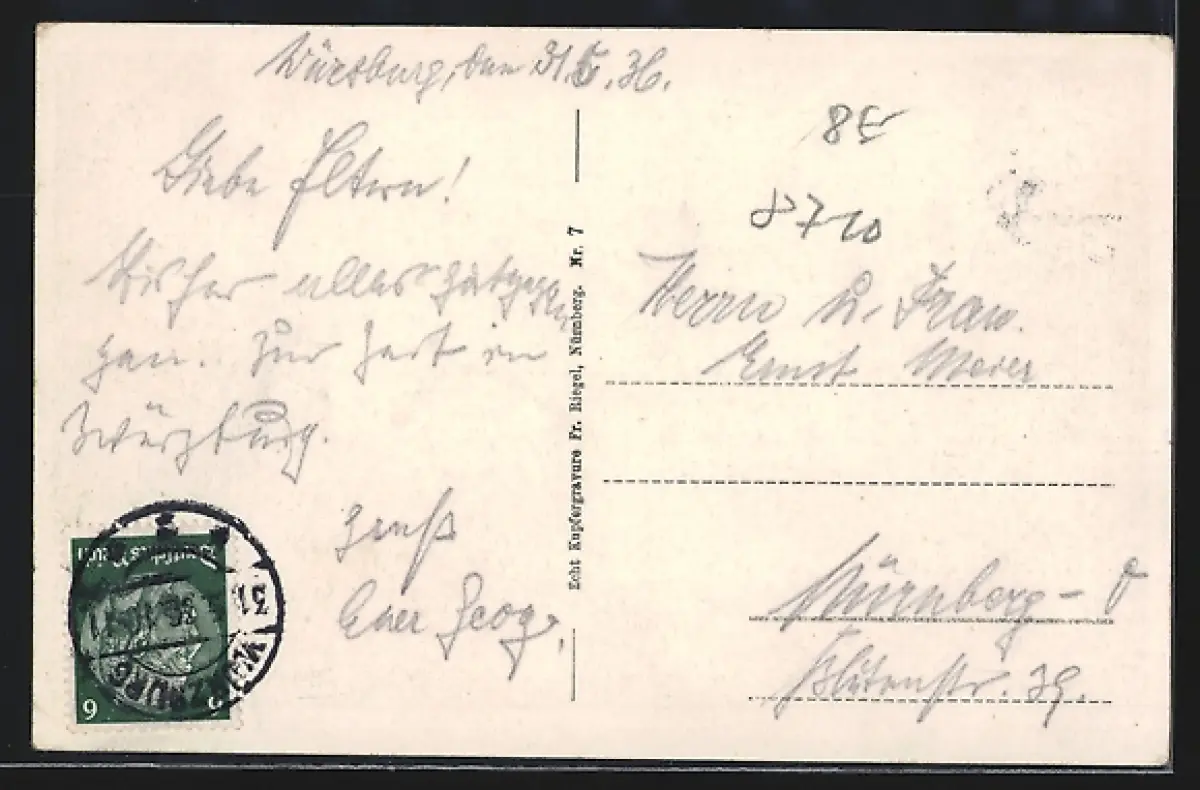 Würzburg, den 31.5.36.
Liebe Eltern!
Bisher alles gutgegan
gen. Zur Zeit in
Würzburg.
Gruß
Euer Georg.
Echt Kupfergravure Fr. Riegel, Nürnberg. Nr. 7
8E
8710
Herrn u. Frau
Ernst Meier
Nürnberg - O
Blütenstr. 39.
Deutsches Reich
6 6
WÜRZBURG
31